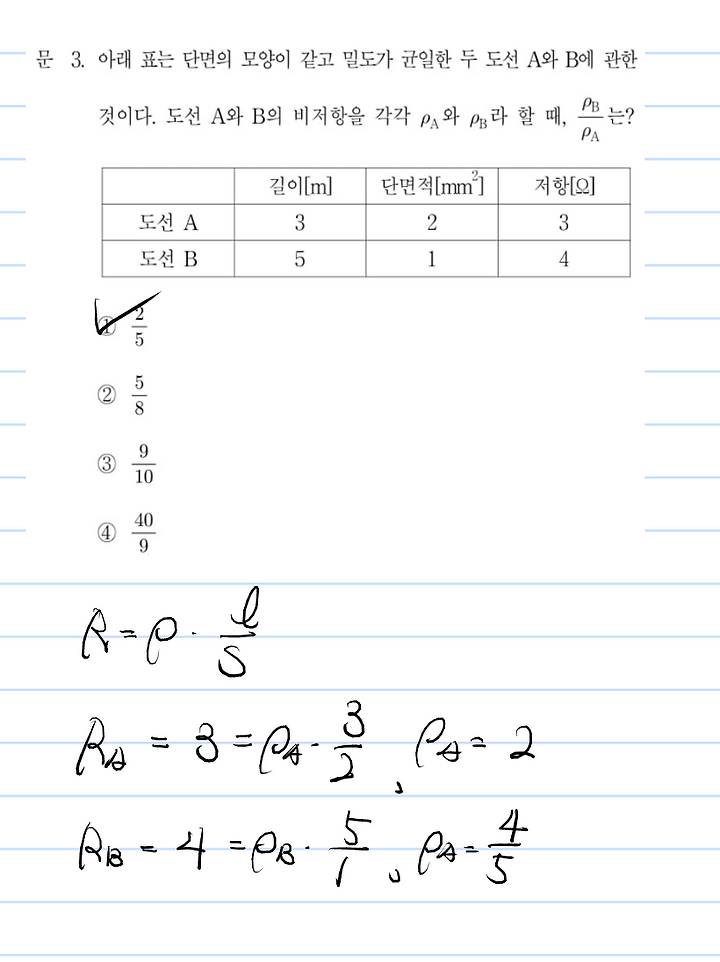 문 3. 아래 표는 단면의 모양이 같고 밀도가 균일한 두 도선 A와 B에 관한
것이다. 도선 A와 B의 비저항을 각각 ρ_A와 ρ_B라 할 때, ρ_B/ρ_A 는?
길이[m] 단면적[mm²] 저항[Ω]
도선 A 3 2 3
도선 B 5 1 4
① 2/5
② 5/8
③ 9/10
④ 40/9
R = ρ · l/S
R_A = 3 = ρ_A · 3/2 , ρ_A = 2
R_B = 4 = ρ_B · 5/1 , ρ_A = 4/5